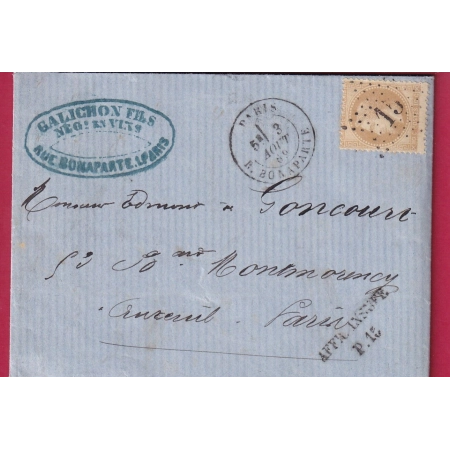 GALICHON FILS
NEGts EN VINS
RUE BONAPARTE.1.PARIS
PARIS
5E/ 3
AOUT
R. BONAPARTE
15
Monsieur Edmond de Goncourt
53 Bard Montmorency
Auteuil Paris
AFFR. INSUFF.
P. 15